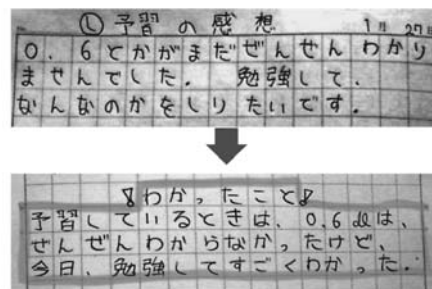 Ⓛ予習の感想 1月27日
0.6とかがまだぜんぜんわかり
ませんでした. 勉強して.
なんなのかをしりたいです.
わかったこと
予習しているときは、0.6dlは、
ぜんぜんわからなかったけど、
今日、勉強してすごくわかった.